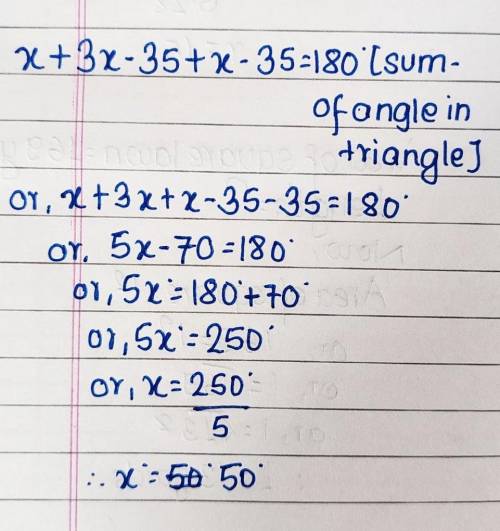 x+3x-35+x-35=180° [sum-
of angle in
triangle]
or, x+3x+x-35-35=180°
or. 5x-70=180°
or, 5x°=180°+70°
or, 5x°=250°
or, x=250°
5
∴ x°=50° 50°